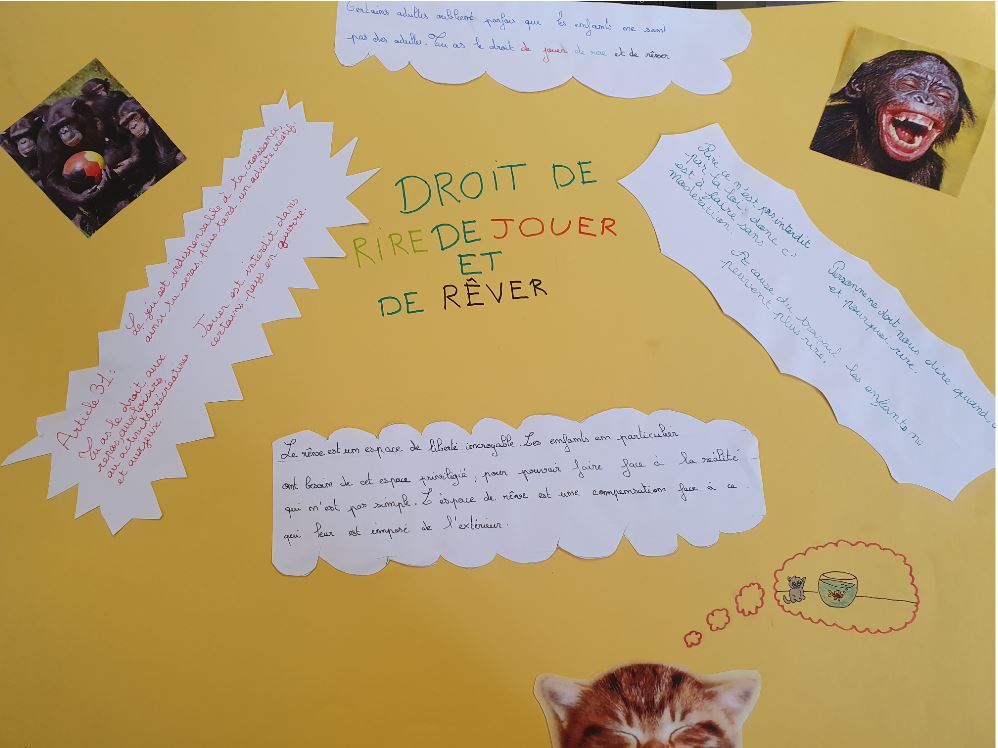 Certains adultes oublient parfois que les enfants ne sont
pas des adultes. Tu as le droit de jouer de rire et de rêver
DROIT DE
RIRE DE JOUER
ET
DE RÊVER
Article 31:
Tu as le droit aux
repos, aux loisirs,
au activités récréatives
et aux jeux.
Le jeu est indispensable à ta croissance,
ainsi tu seras, plus tard un adulte créatif.
Jouer est interdit dans
certains pays en guerre.
Rire ce n'est pas interdit
par la loi donc c'
est à faire sans
modération.
Personne ne doit nous dire quand,
et pourquoi rire.
A cause du travail les enfants n
peuvent plus rire,
Le rêve est un espace de liberté incroyable. Les enfants en particulier
ont besoin de cet espace privilégié, pour pouvoir faire face à la réalité
qui n'est pas simple. L'éspace de rêve est une compensation face à ce
qui leur est imposé de l'extérieur.